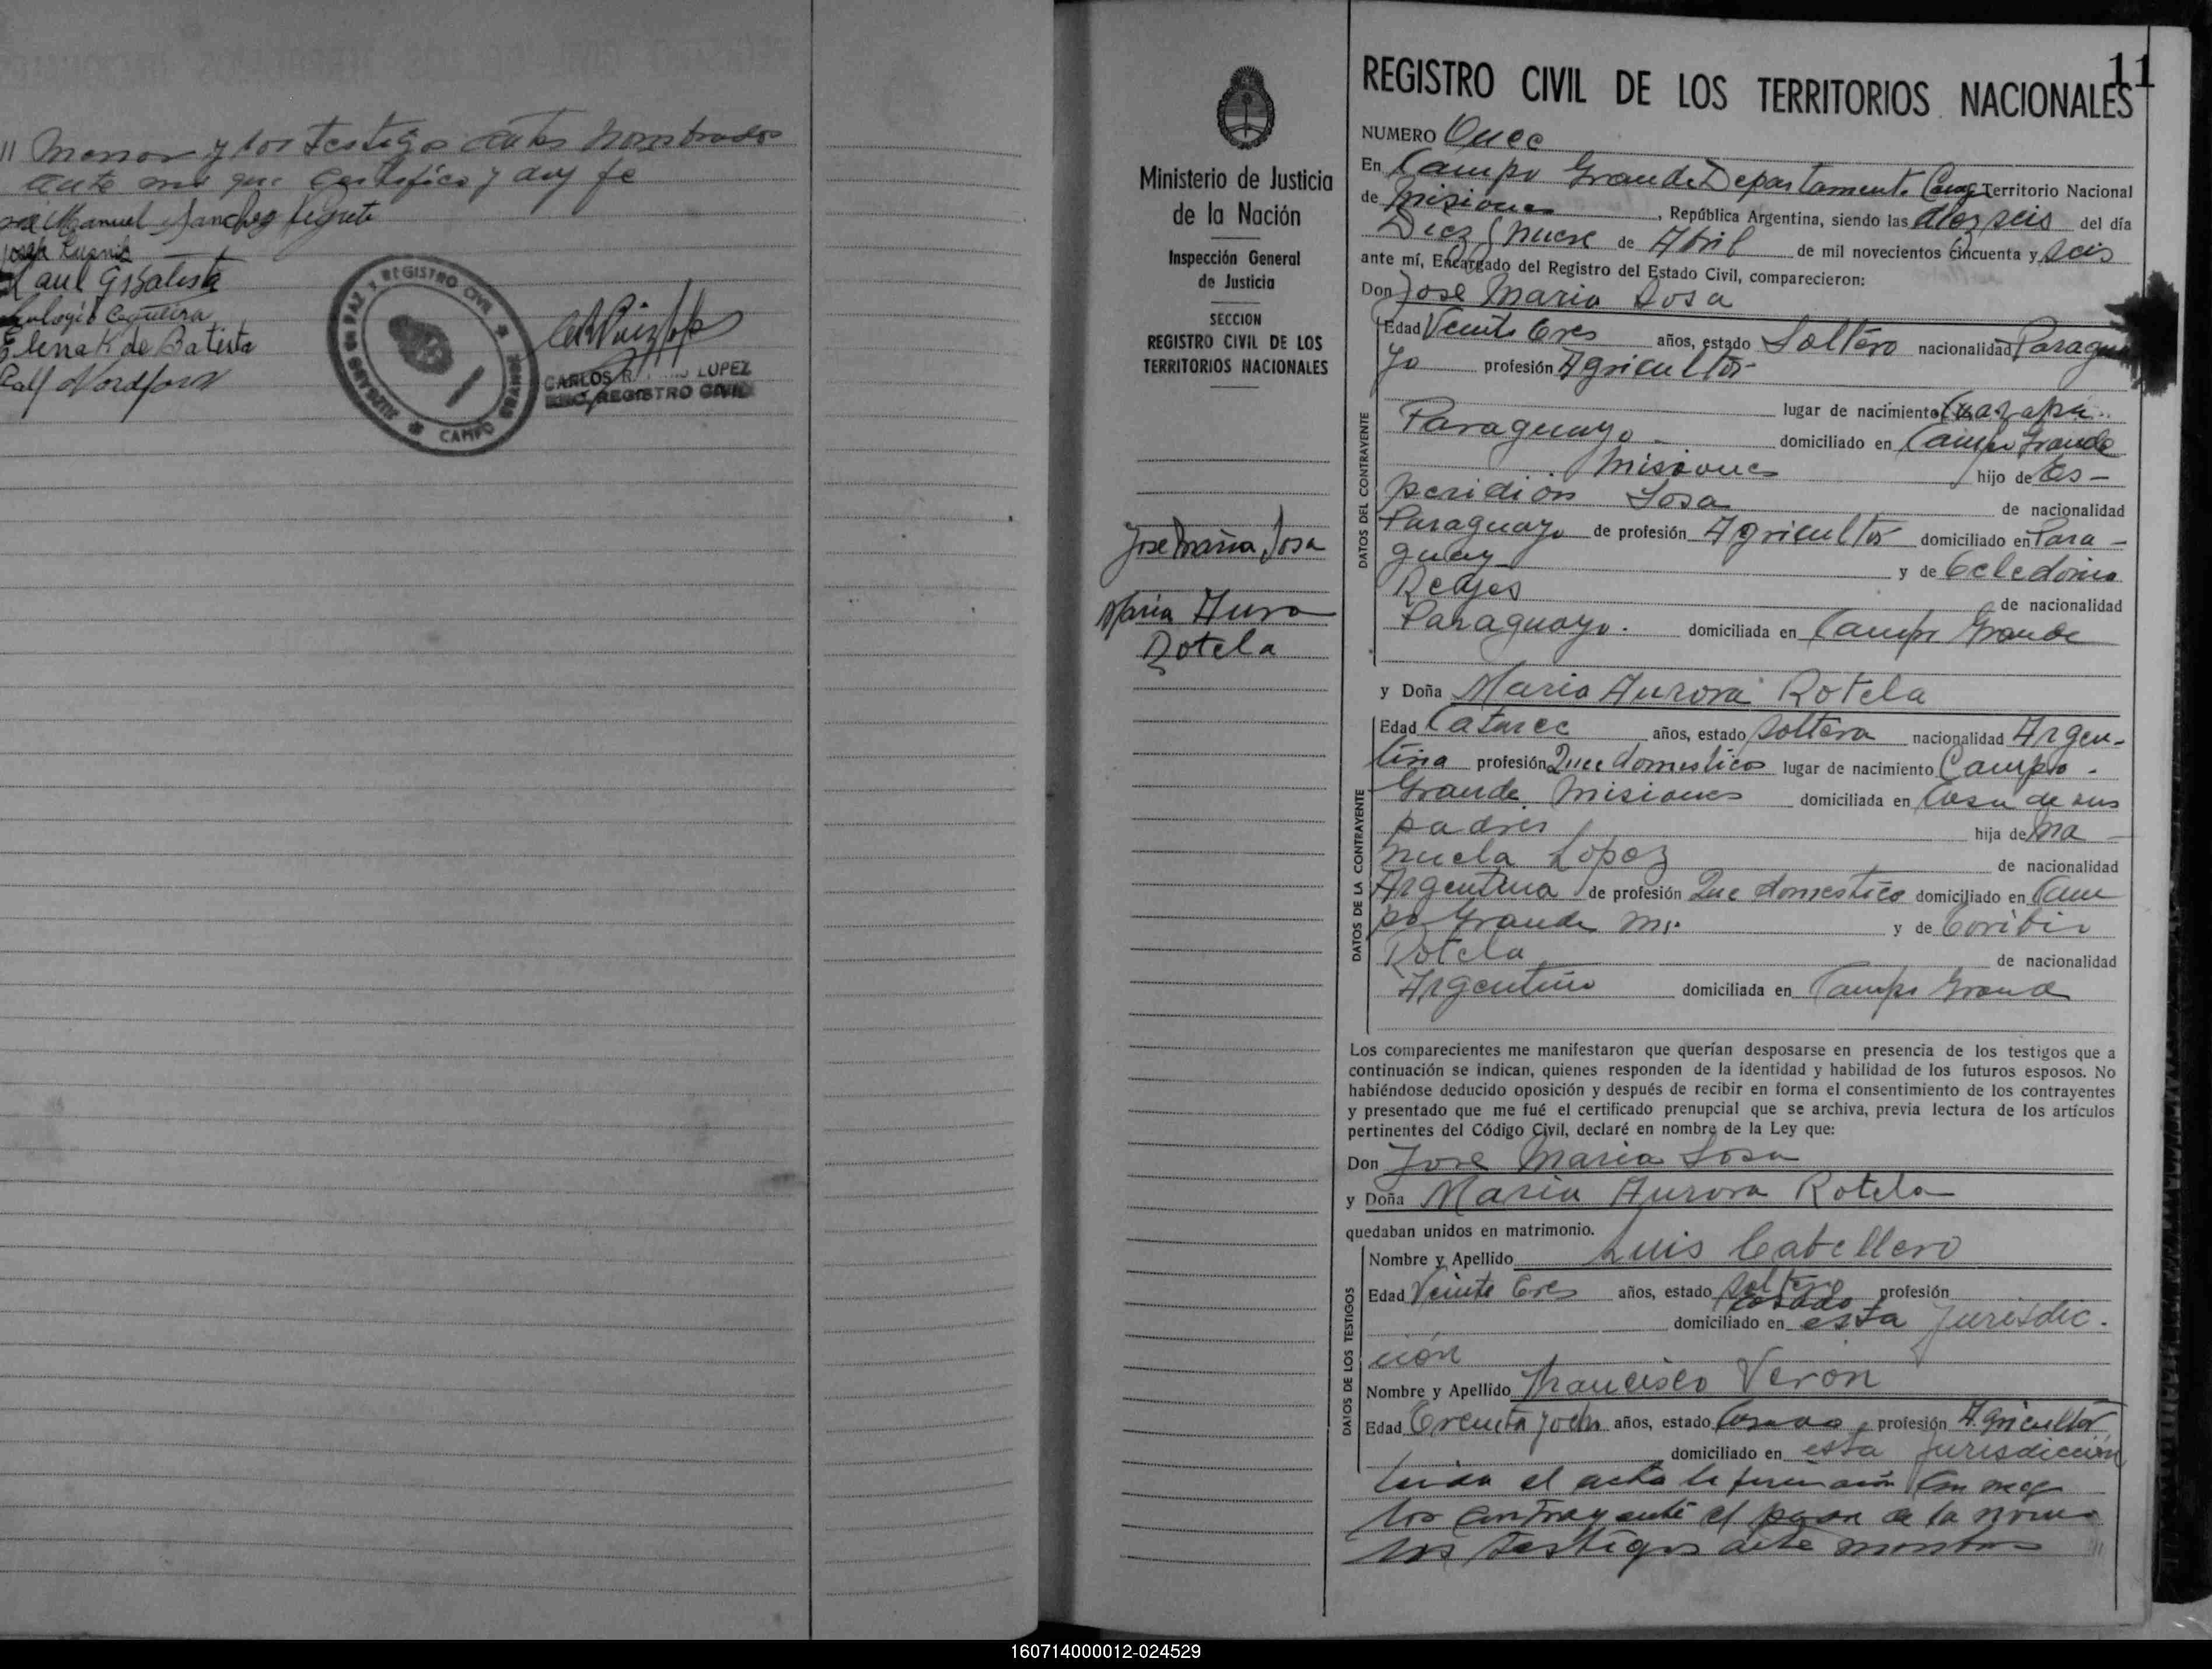 11 Menor y los testigos antes nombrados
ante mi que certifico y doy fe
Manuel Sanchez Negrete
Raul G Batista
Eulogio Cequeira
Elena K de Batista
Ralf Nordfors
JUZGADO DE PAZ Y REGISTRO CIVIL
CAMPO GRANDE
CARLOS R LOPEZ
ENC. REGISTRO CIVIL
Ministerio de Justicia
de la Nación
Inspección General
de Justicia
SECCION
REGISTRO CIVIL DE LOS
TERRITORIOS NACIONALES
Jose Maria Sosa
Maria Aurora
Rotela
11
REGISTRO CIVIL DE LOS TERRITORIOS NACIONALES
NUMERO Once
En Campo Grande Departamento Caing Territorio Nacional
de Misiones, República Argentina, siendo las diez seis del día
Diez y nueve de Abril de mil novecientos cincuenta y seis
ante mí, Encargado del Registro del Estado Civil, comparecieron:
Don Jose Maria Sosa
Edad Veinte tres años, estado Soltero nacionalidad Paragua
yo profesión Agricultor
lugar de nacimiento Caazapa
Paraguayo domiciliado en Campo Grande
Misiones hijo de Es-
peridion Sosa de nacionalidad
Paraguayo de profesión Agricultor domiciliado en Para-
guay y de Celedonia
Reyes de nacionalidad
Paraguayo. domiciliada en Campo Grande
y Doña Maria Aurora Rotela
Edad Catorce años, estado soltera nacionalidad Argen-
tina profesión Quee domesticos lugar de nacimiento Campo
Grande Misiones domiciliada en Casa de sus
padres hija de Ma-
nuela Lopez de nacionalidad
Argentina de profesión Que domestico domiciliado en Cam
po Grande Ms. y de Toribio
Rotela de nacionalidad
Argentino domiciliada en Campo Grande
DATOS DEL CONTRAYENTE
DATOS DE LA CONTRAYENTE
Los comparecientes me manifestaron que querían desposarse en presencia de los testigos que a
continuación se indican, quienes responden de la identidad y habilidad de los futuros esposos. No
habiéndose deducido oposición y después de recibir en forma el consentimiento de los contrayentes
y presentado que me fué el certificado prenupcial que se archiva, previa lectura de los artículos
pertinentes del Código Civil, declaré en nombre de la Ley que:
Don Jose Maria Sosa
y Doña Maria Aurora Rotela
quedaban unidos en matrimonio.
Nombre y Apellido Luis Cabellero
Edad Veinte tres años, estado soltero profesión
casado
domiciliado en esta Jurisdic-
cion
Nombre y Apellido Francisco Veron
Edad Treinta y ocho años, estado Casado, profesión Agricultor
domiciliado en esta Jurisdiccion
DATOS DE LOS TESTIGOS
Leida el acta la firmaron con migo
los contrayente el padre de la novia
los testigos ante
160714000012-024529